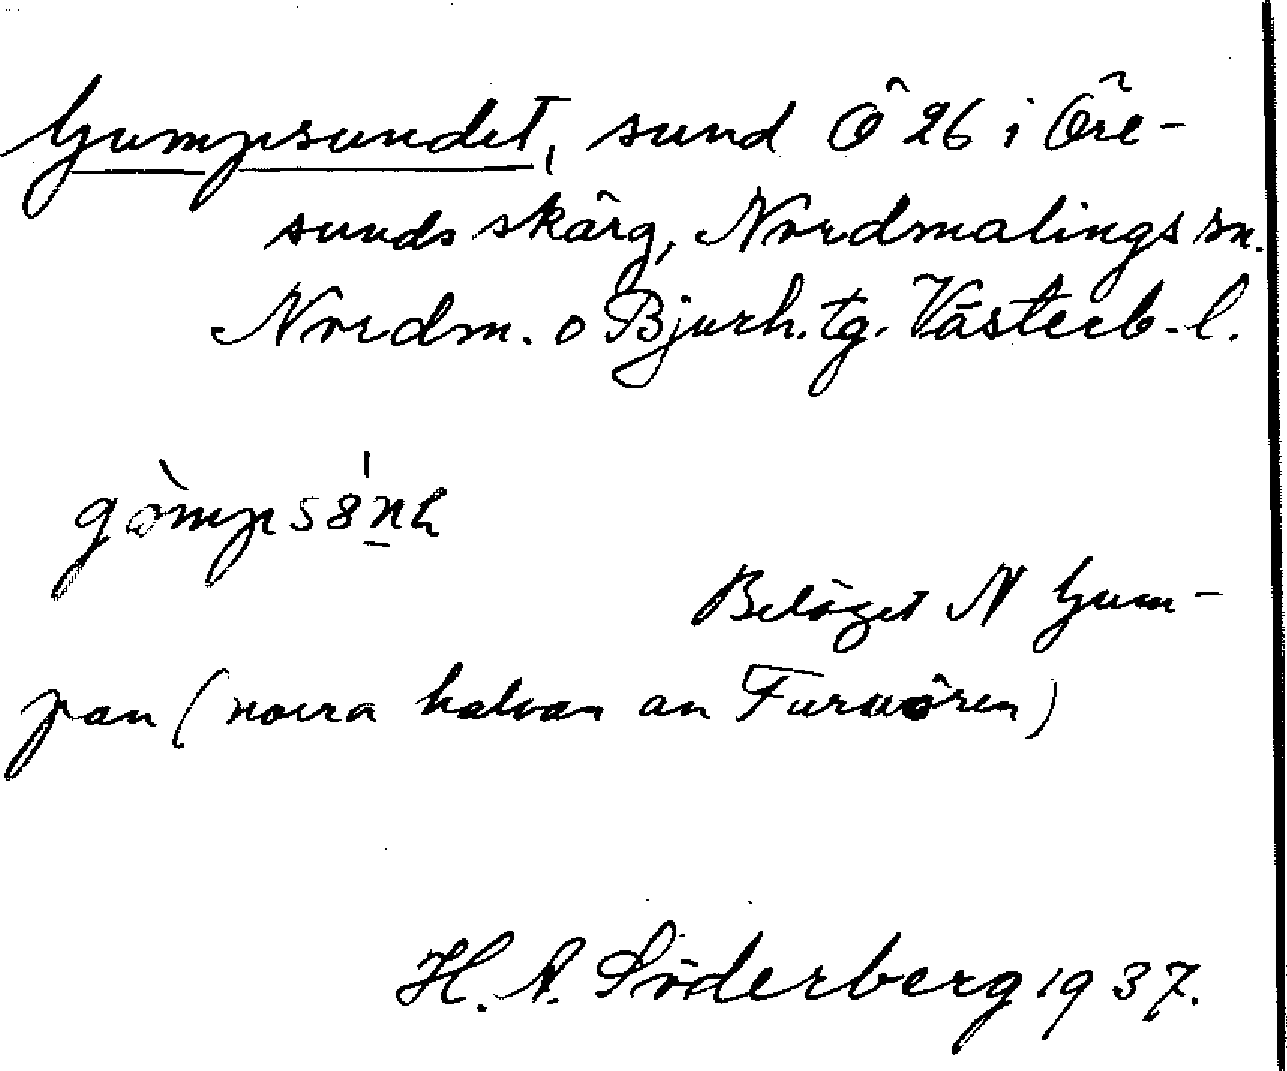 Gumpsundet, sund Ö 26 i Öre-
sunds skärg, Nordmalings sn.
Nordm. o Bjurh. tg. Västerb. l.
Beläget N Gum-
pan (norra halvan an Furuören)
H. A. Söderberg 1937.